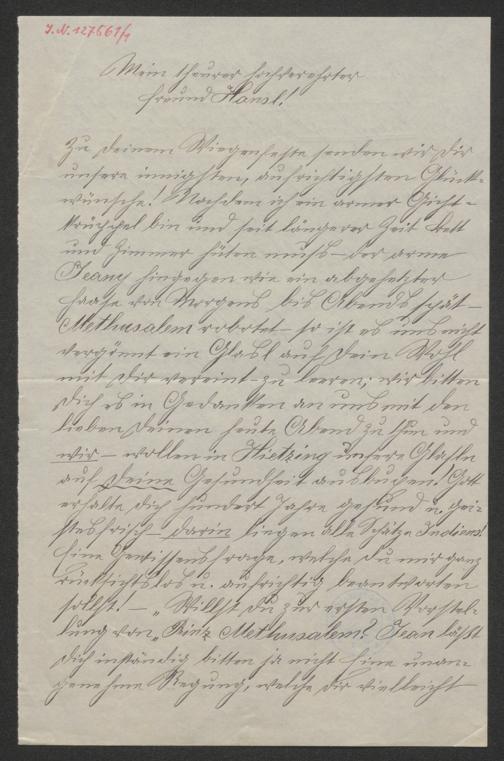 I.N. 127561/1
Mein theurer hochverehrter
Freund Hansl!
Zu Deinem Wiegenfeste senden wir Dir
unsere innigsten, aufrichtigsten Glück-
wünsche! Nachdem ich ein armer Gicht-
krüppel bin und seit längerer Zeit Bett
und Zimmer hüten muß – der arme
Jeany hingegen wie ein abgehetzter
Haase von Morgens bis Abends spät –
Methusalem robotet – so ist es uns nicht
vergönnt ein Glasl auf Dein Wohl
mit Dir vereint zu leeren; wir bitten
Dich es in Gedanken an uns mit den
lieben Deinen heute Abend zu thun und
wir – wollen in Hietzing unsere Glasln
auf Deine Gesundheit auslupfen. Gott
erhalte Dich hundert Jahre gesund u. gei-
stesfrisch – darin liegen alle Schätze Indiens!
Eine Gewissensfrage, welche Du mir ganz
rücksichtslos u. aufrichtig beantworten
sollst! – „Willst Du zur ersten Vorstel-
lung von „Prinz Methusalem? Jean läßt
Dich inständig bitten ja nicht eine unan-
genehme Regung, welche Dir vielleicht